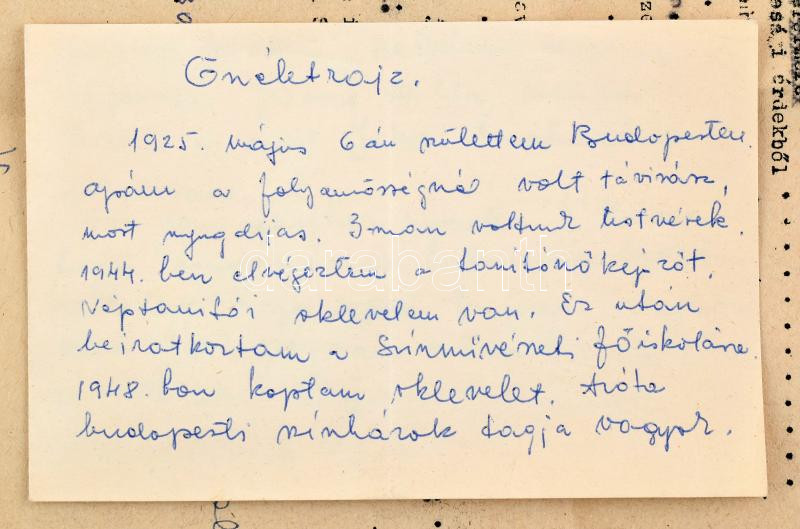 Önéletrajz.
1925. május 6 án születtem Budapesten.
apám a folyamőrségnél volt távirász,
most nyugdijas. 3 man voltunk testvérek.
1944. ben elvégeztem a tanitónőképzőt.
Néptanitói oklevelem van. Ez után
beiratkoztam a Szinmüvészeti főiskolára.
1948. ban kaptam oklevelet. Azóta
budapesti szinházak tagja vagyok.
darabanth
i érdekből